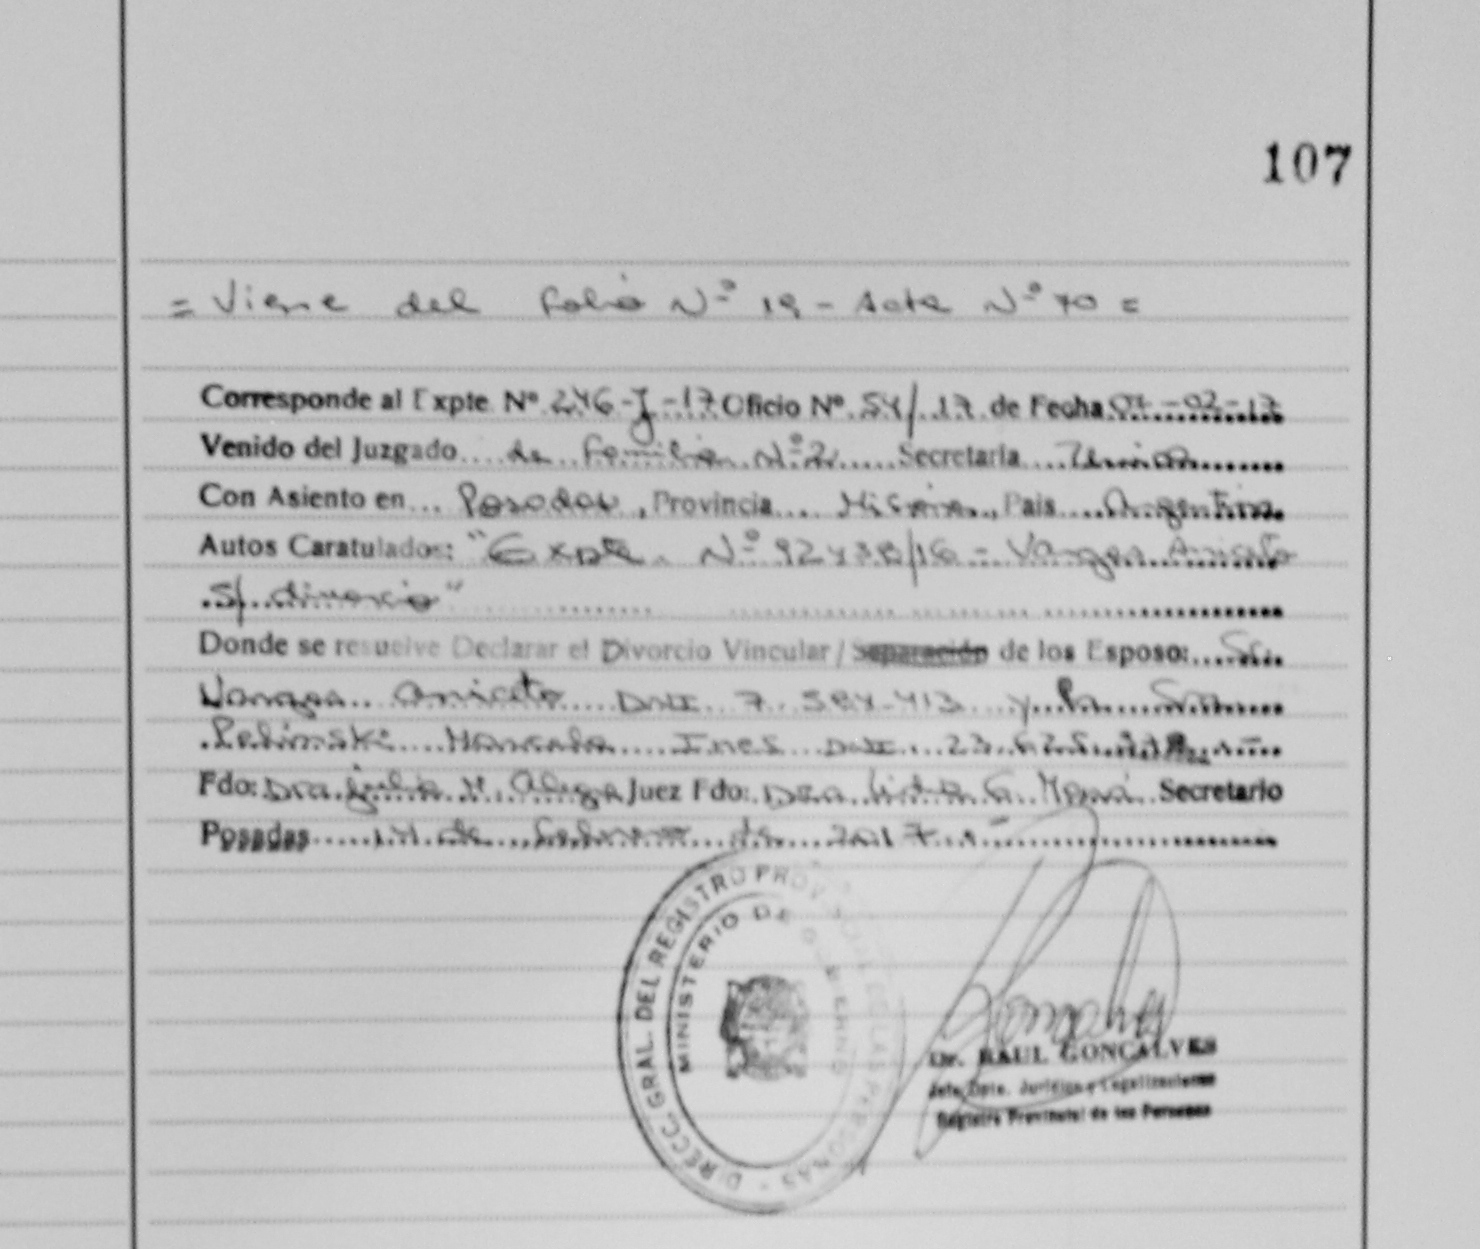 107
= Viene del folio Nº 19 - Acta Nº 70 =
Corresponde al Expte Nº 246-J-17 Oficio Nº 54/17 de Fecha 07-02-17
Venido del Juzgado de Familia Nº 2 Secretaria Unica
Con Asiento en Posadas, Provincia Misiones, Pais Argentina
Autos Caratulados: "Expte. Nº 92438/16 - Vargas Aniceto
s/ divorcio"
Donde se resuelve Declarar el Divorcio Vincular / Separación de los Esposo: Sr.
Vargas Aniceto DNI 7.584.413 y la Sra
Pelinski Marcela Ines DNI 23.625.
Fdo: Dra. Julia M. Juez Fdo: Dra. G. Secretario
Posadas 14 de Febrero de 2017.-
DIRECC. GRAL. DEL REGISTRO PROV. DE LAS PERSONAS -
MINISTERIO DE GOBIERNO
Dr. RAUL GONCALVES
Jefe Dpto. Jurídico y Legalizaciones
Registro Provincial de las Personas